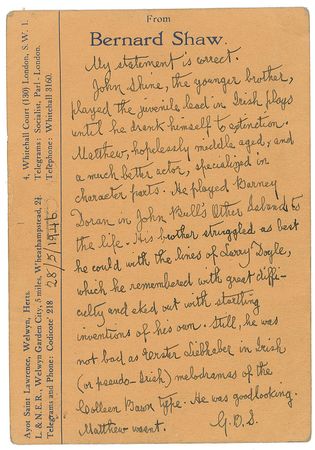 From
Bernard Shaw.
4, Whitehall Court (130) London, S.W. 1.
Telegrams: Socialist, Parl - London.
Telephone: Whitehall 3160.
Ayot Saint Lawrence, Welwyn, Herts.
L. & N.E.R., Welwyn Garden City, 5 miles, Wheathampstead, 2¼.
Telegrams and Phone: Codicote 218
28/5/1946
My statement is correct.
John Shine, the younger brother,
played the juvenile lead in Irish plays
until he drank himself to extinction.
Matthew, hopelessly middle aged, and
a much better actor, specialized in
character parts. He played Barney
Doran in John Bull's Other Island to
the life. His brother struggled as best
he could with the lines of Larry Doyle,
which he remembered with great diffi-
culty and eked out with startling
inventions of his own. Still, he was
not bad as Erster Liebhaber in Irish
(or pseudo-Irish) melodramas of the
Colleen Bawn type. He was goodlooking.
Matthew wasnt.
G.B.S.